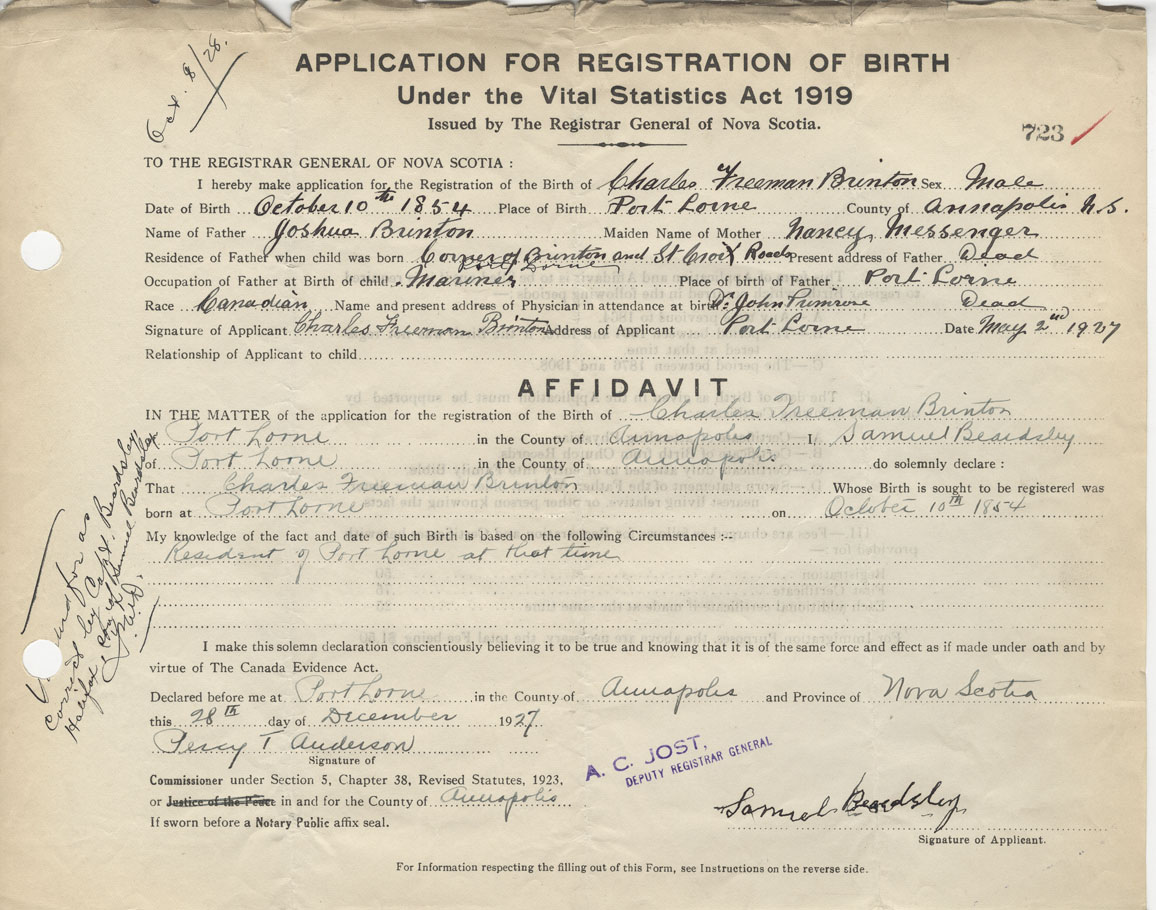 Oct. 8/28.
APPLICATION FOR REGISTRATION OF BIRTH
Under the Vital Statistics Act 1919
Issued by The Registrar General of Nova Scotia.
723
TO THE REGISTRAR GENERAL OF NOVA SCOTIA :
I hereby make application for the Registration of the Birth of Charles Freeman Brinton Sex Male
Date of Birth October 10th 1854 Place of Birth Port Lorne County of Annapolis N.S.
Name of Father Joshua Brinton Maiden Name of Mother Nancy Messenger
Residence of Father when child was born Corner of Brinton and St Croix Roads Present address of Father Dead
Port Lorne
Occupation of Father at Birth of child Mariner Place of birth of Father Port Lorne
Race Canadian Name and present address of Physician in attendance at birth Dr. John Primrose Dead
Signature of Applicant Charles Freeman Brinton Address of Applicant Port Lorne Date May 2nd 1927
Relationship of Applicant to child
AFFIDAVIT
IN THE MATTER of the application for the registration of the Birth of Charles Freeman Brinton
Port Lorne in the County of Annapolis I, Samuel Beardsley
of Port Lorne in the County of Annapolis do solemnly declare :
That Charles Freeman Brinton Whose Birth is sought to be registered was
born at Port Lorne on October 10th 1854
My knowledge of the fact and date of such Birth is based on the following Circumstances :--
Resident of Port Lorne at that time
I make this solemn declaration conscientiously believing it to be true and knowing that it is of the same force and effect as if made under oath and by
virtue of The Canada Evidence Act.
Declared before me at Port Lorne in the County of Annapolis and Province of Nova Scotia
this 28th day of December 1927
Percy T Anderson
Signature of
Commissioner under Section 5, Chapter 38, Revised Statutes, 1923,
or Justice of the Peace in and for the County of Annapolis
If sworn before a Notary Public affix seal.
A. C. JOST,
DEPUTY REGISTRAR GENERAL
Samuel Beardsley
Signature of Applicant.
For Information respecting the filling out of this Form, see Instructions on the reverse side.
for as
by Capt. Beardsley,
Halifax, son of Samuel Beardsley